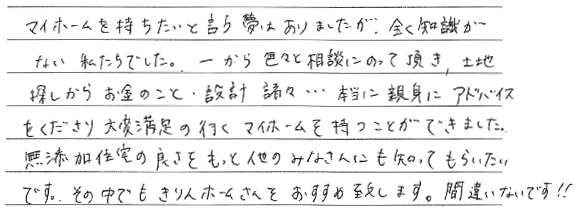 マイホームを持ちたいと言う夢はありましたが、全く知識が
ない私たちでした。一から色々と相談にのって頂き、土地
探しからお金のこと・設計 諸々…本当に親身にアドバイス
をくださり大変満足の行くマイホームを持つことができました。
無添加住宅の良さをもっと他のみなさんにも知ってもらいたい
です。その中でもきりんホームさんをおすすめ致します。間違いないです!!